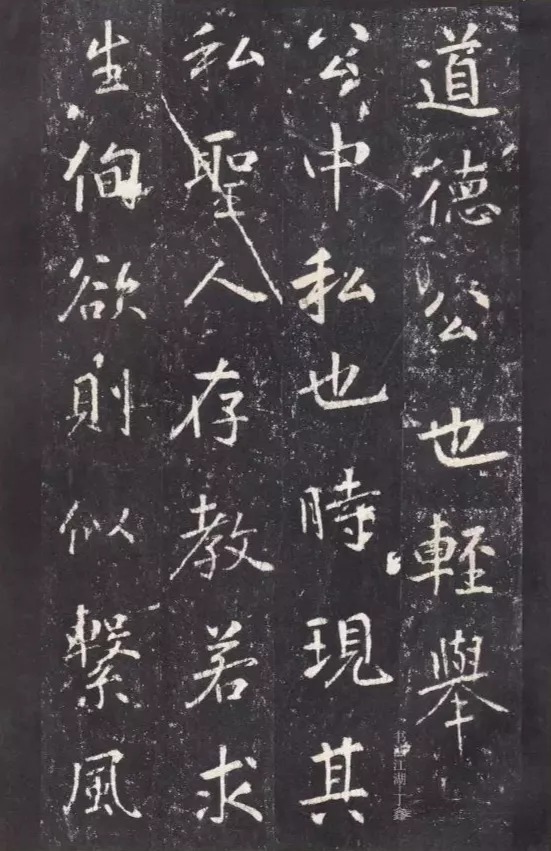 道德公也輕舉
公中私也時現其
私聖人存教若求
生徇欲則似繫風
书画江湖丁鑫